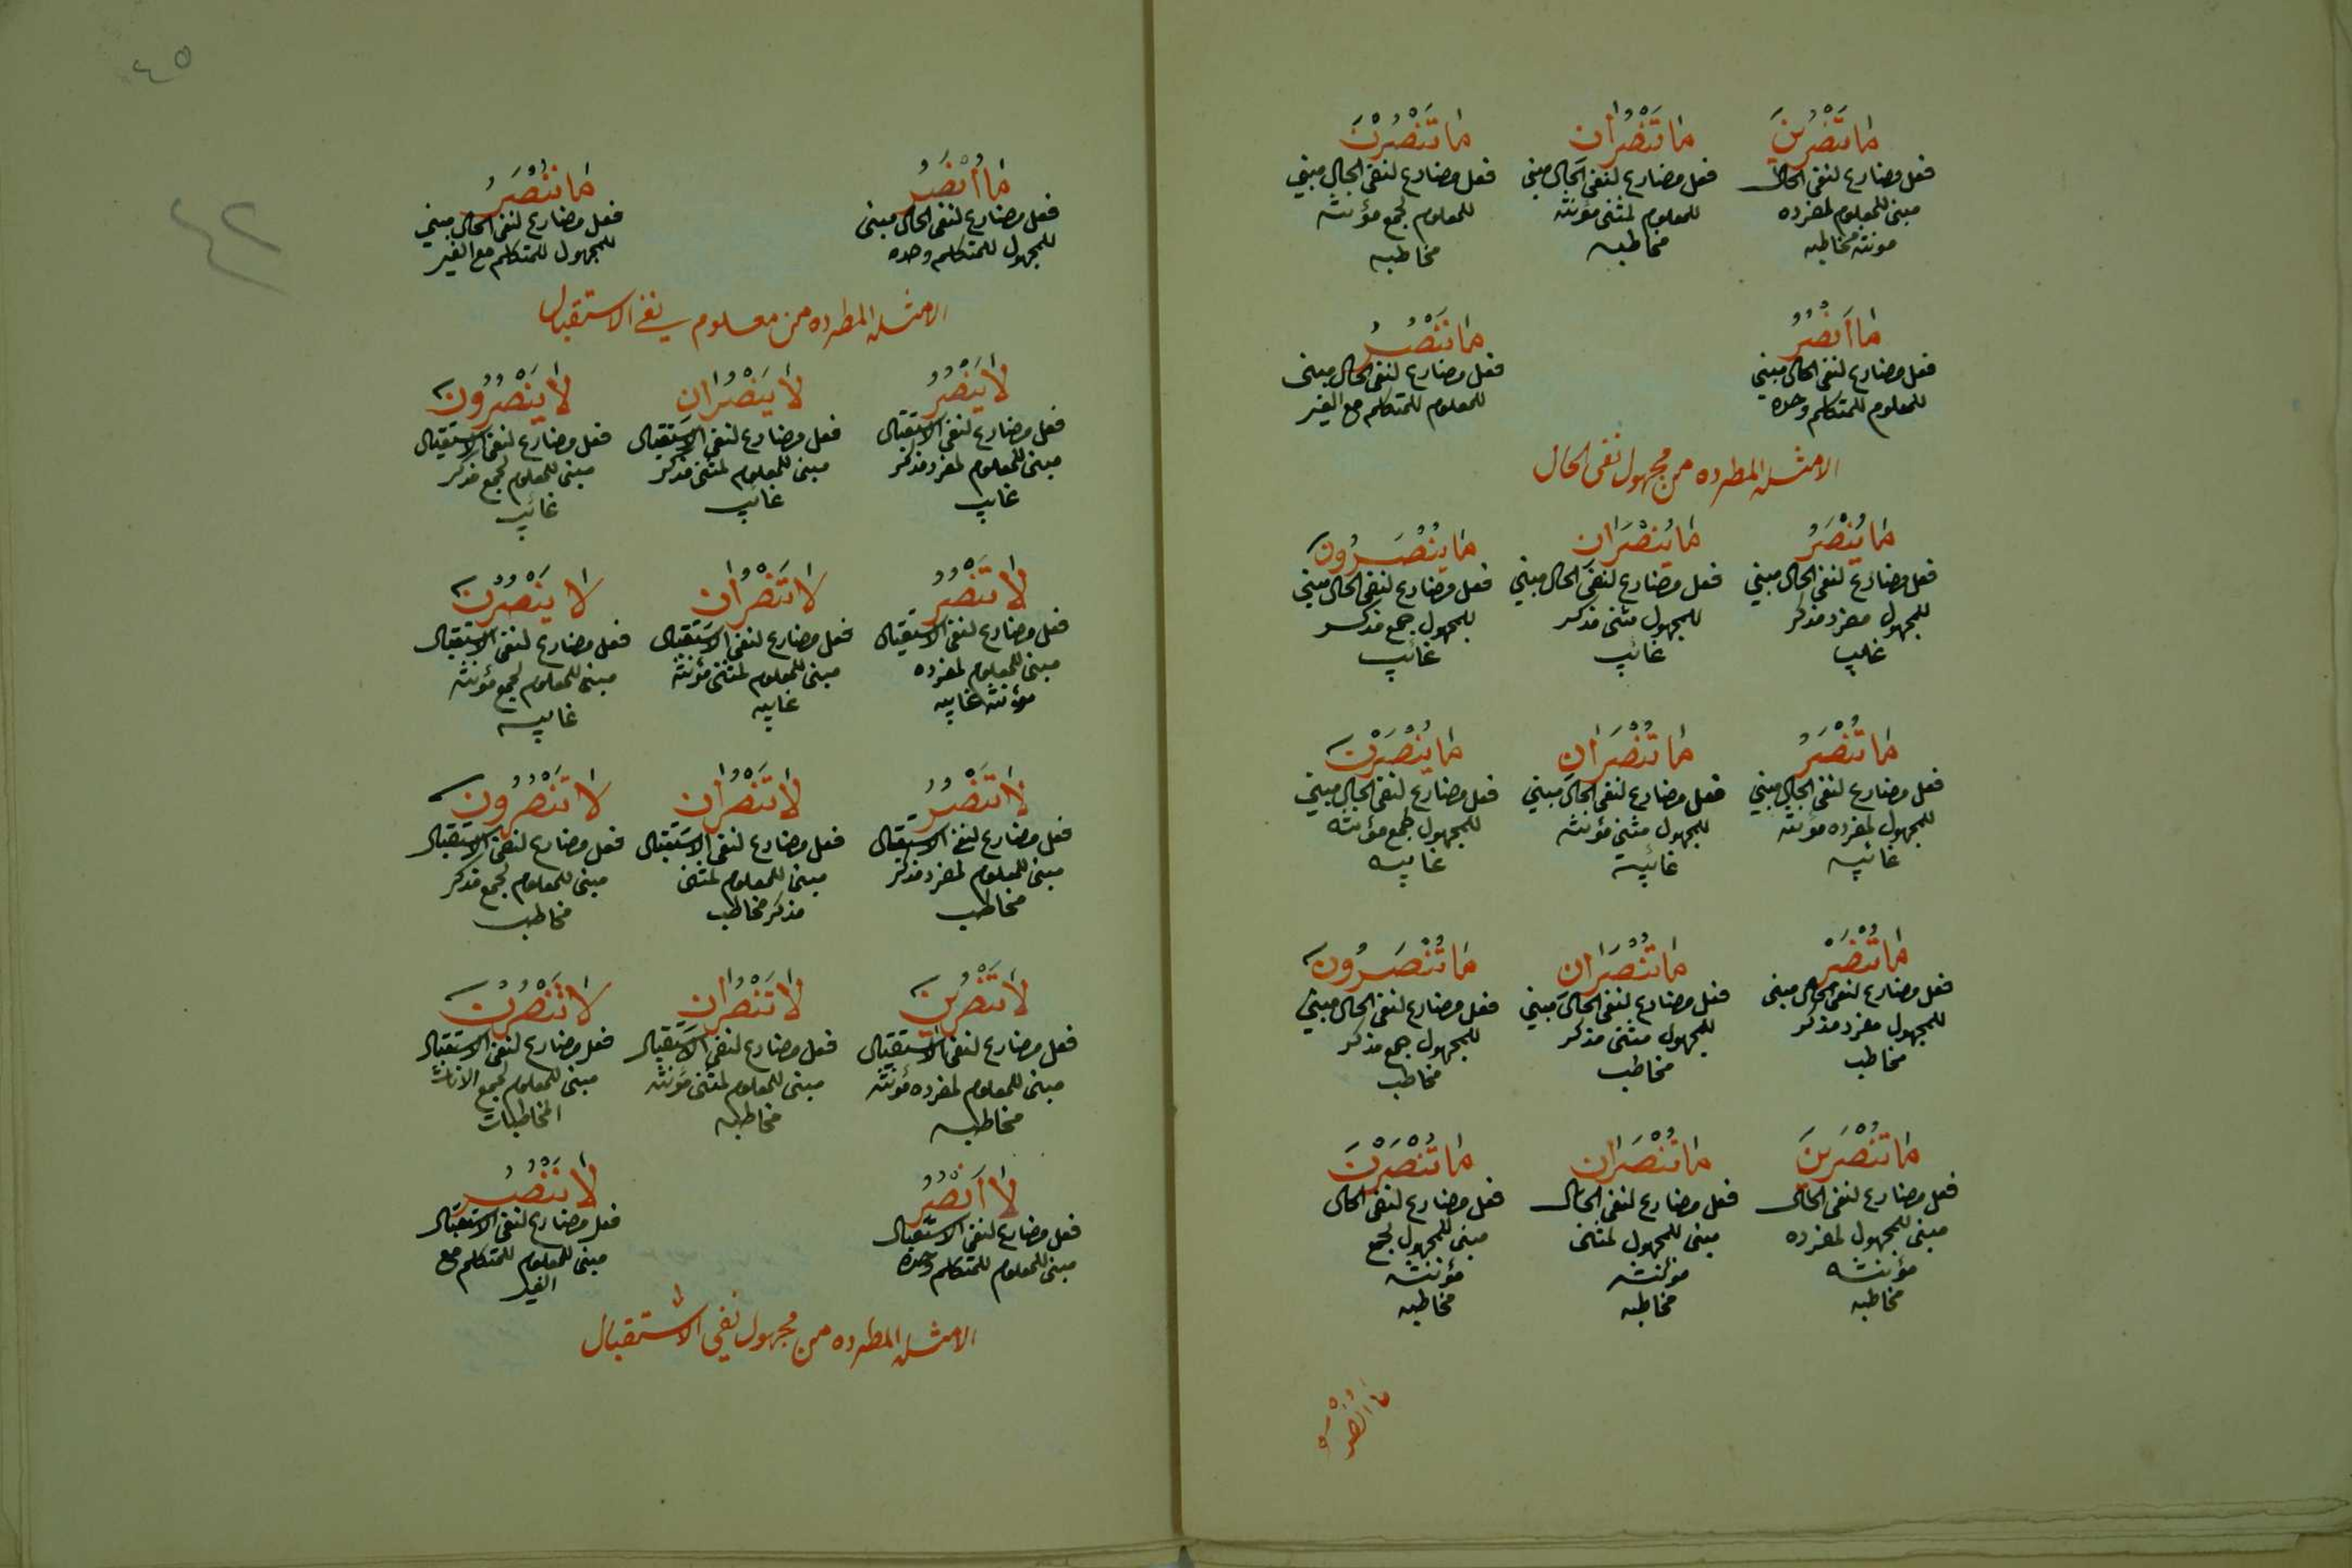 مَا تَنْصُرِينَ
فعل مضارع لنفى الحال
مبنى للمعلوم لمفرده
مونثه مخاطبه
مَا تَنْصُرَانِ
فعل مضارع لنفى الحال مبنى
للمعلوم لمثنى مؤنثه
مخاطبه
مَا تَنْصُرْنَ
فعل مضارع لنفى الحال مبنى
للمعلوم لجمع مؤنثه
مخاطبه
مَا أَنْصُرُ
فعل مضارع لنفى الحال مبنى
للمعلوم للمتكلم وحده
مَا نَنْصُرُ
فعل مضارع لنفى الحال مبنى
للمعلوم للمتكلم مع الغير
الامثله المطرده من مجهول نفى الحال
مَا يُنْصَرُ
فعل مضارع لنفى الحال مبنى
للمجهول مفرد مذكر
غايب
مَا يُنْصَرَانِ
فعل مضارع لنفى الحال مبنى
للمجهول مثنى مذكر
غائب
مَا يُنْصَرُونَ
فعل مضارع لنفى الحال مبنى
للمجهول جمع مذكر
غائب
مَا تُنْصَرُ
فعل مضارع لنفى الحال مبنى
للمجهول لمفرده مؤنثه
غائبه
مَا تُنْصَرَانِ
فعل مضارع لنفى الحال مبنى
للمجهول مثنى مؤنثه
غائبة
مَا يُنْصَرْنَ
فعل مضارع لنفى الحال مبنى
للمجهول لجمع مؤنثه
غايبه
مَا تُنْصَرُ
فعل مضارع لنفى الحال مبنى
للمجهول مفرد مذكر
مخاطب
مَا تُنْصَرَانِ
فعل مضارع لنفى الحال مبنى
للمجهول مثنى مذكر
مخاطب
مَا تُنْصَرُونَ
فعل مضارع لنفى الحال مبنى
للمجهول جمع مذكر
مخاطب
مَا تُنْصَرِينَ
فعل مضارع لنفى الحال
مبنى للمجهول لمفرده
مؤنثه
مخاطبه
مَا تُنْصَرَانِ
فعل مضارع لنفى الحال
مبنى للمجهول لمثنى
مؤنثه
مخاطبه
مَا تُنْصَرْنَ
فعل مضارع لنفى الحال
مبنى للمجهول لجمع
مؤنثه
مخاطبه
مَا اُنْصَرُ
٤٥
٤٢
مَا أُنْصَرُ
فعل مضارع لنفى الحال مبنى
للمجهول للمتكلم وحده
مَا نُنْصَرُ
فعل مضارع لنفى الحال مبني
للمجهول للمتكلم مع الغير
الامثله المطرده من معلوم نفى الاستقبال
لَا يَنْصُرُ
فعل مضارع لنفى الاستقبال
مبنى للمعلوم لمفرد مذكر
غايب
لَا يَنْصُرَانِ
فعل مضارع لنفى الاستقبال
مبنى للمعلوم لمثنى مذكر
غائب
لَا يَنْصُرُونَ
فعل مضارع لنفى الاستقبال
مبنى للمعلوم لجمع مذكر
غائب
لَا تَنْصُرُ
فعل مضارع لنفى الاستقبال
مبنى للمعلوم لمفرده
مؤنثه غايبه
لَا تَنْصُرَانِ
فعل مضارع لنفى الاستقبال
مبنى للمعلوم لمثنى مؤنثه
غايبه
لَا يَنْصُرْنَ
فعل مضارع لنفى الاستقبال
مبنى للمعلوم لجمع مؤنثه
غايبه
لَا تَنْصُرُ
فعل مضارع لنفى الاستقبال
مبنى للمعلوم لمفرد مذكر
مخاطب
لَا تَنْصُرَانِ
فعل مضارع لنفى الاستقبال
مبنى للمعلوم لمثنى
مذكر مخاطب
لَا تَنْصُرُونَ
فعل مضارع لنفى الاستقبال
مبنى للمعلوم لجمع مذكر
مخاطب
لَا تَنْصُرِينَ
فعل مضارع لنفى الاستقبال
مبنى للمعلوم لمفرده مؤنثه
مخاطبه
لَا تَنْصُرَانِ
فعل مضارع لنفى الاستقبال
مبنى للمعلوم لمثنى مؤنثه
مخاطبه
لَا تَنْصُرْنَ
فعل مضارع لنفى الاستقبال
مبنى للمعلوم لجمع الاناث
المخاطبات
لَا أَنْصُرُ
فعل مضارع لنفى الاستقبال
مبنى للمعلوم للمتكلم وحده
لَا نَنْصُرُ
فعل مضارع لنفى الاستقبال
مبنى للمعلوم للمتكلم مع
الغير
الامثله المطرده من مجهول نفي الاستقبال